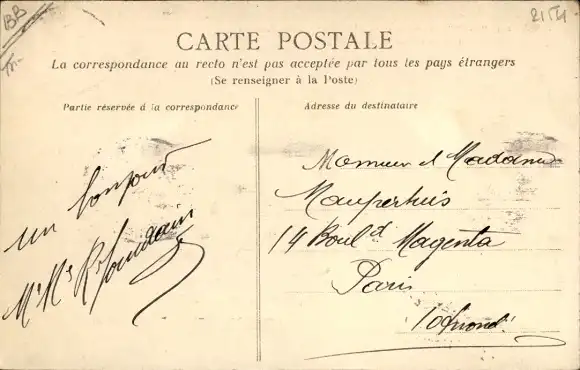 BB
2154
CARTE POSTALE
La correspondance au recto n'est pas acceptée par tous les pays étrangers
(Se renseigner à la Poste)
Partie réservée à la correspondance
Adresse du destinataire
un bonjour
Mr Ms R. Jourdain
Monsieur et Madame
Mauperthuis
14 Bould Magenta
Paris